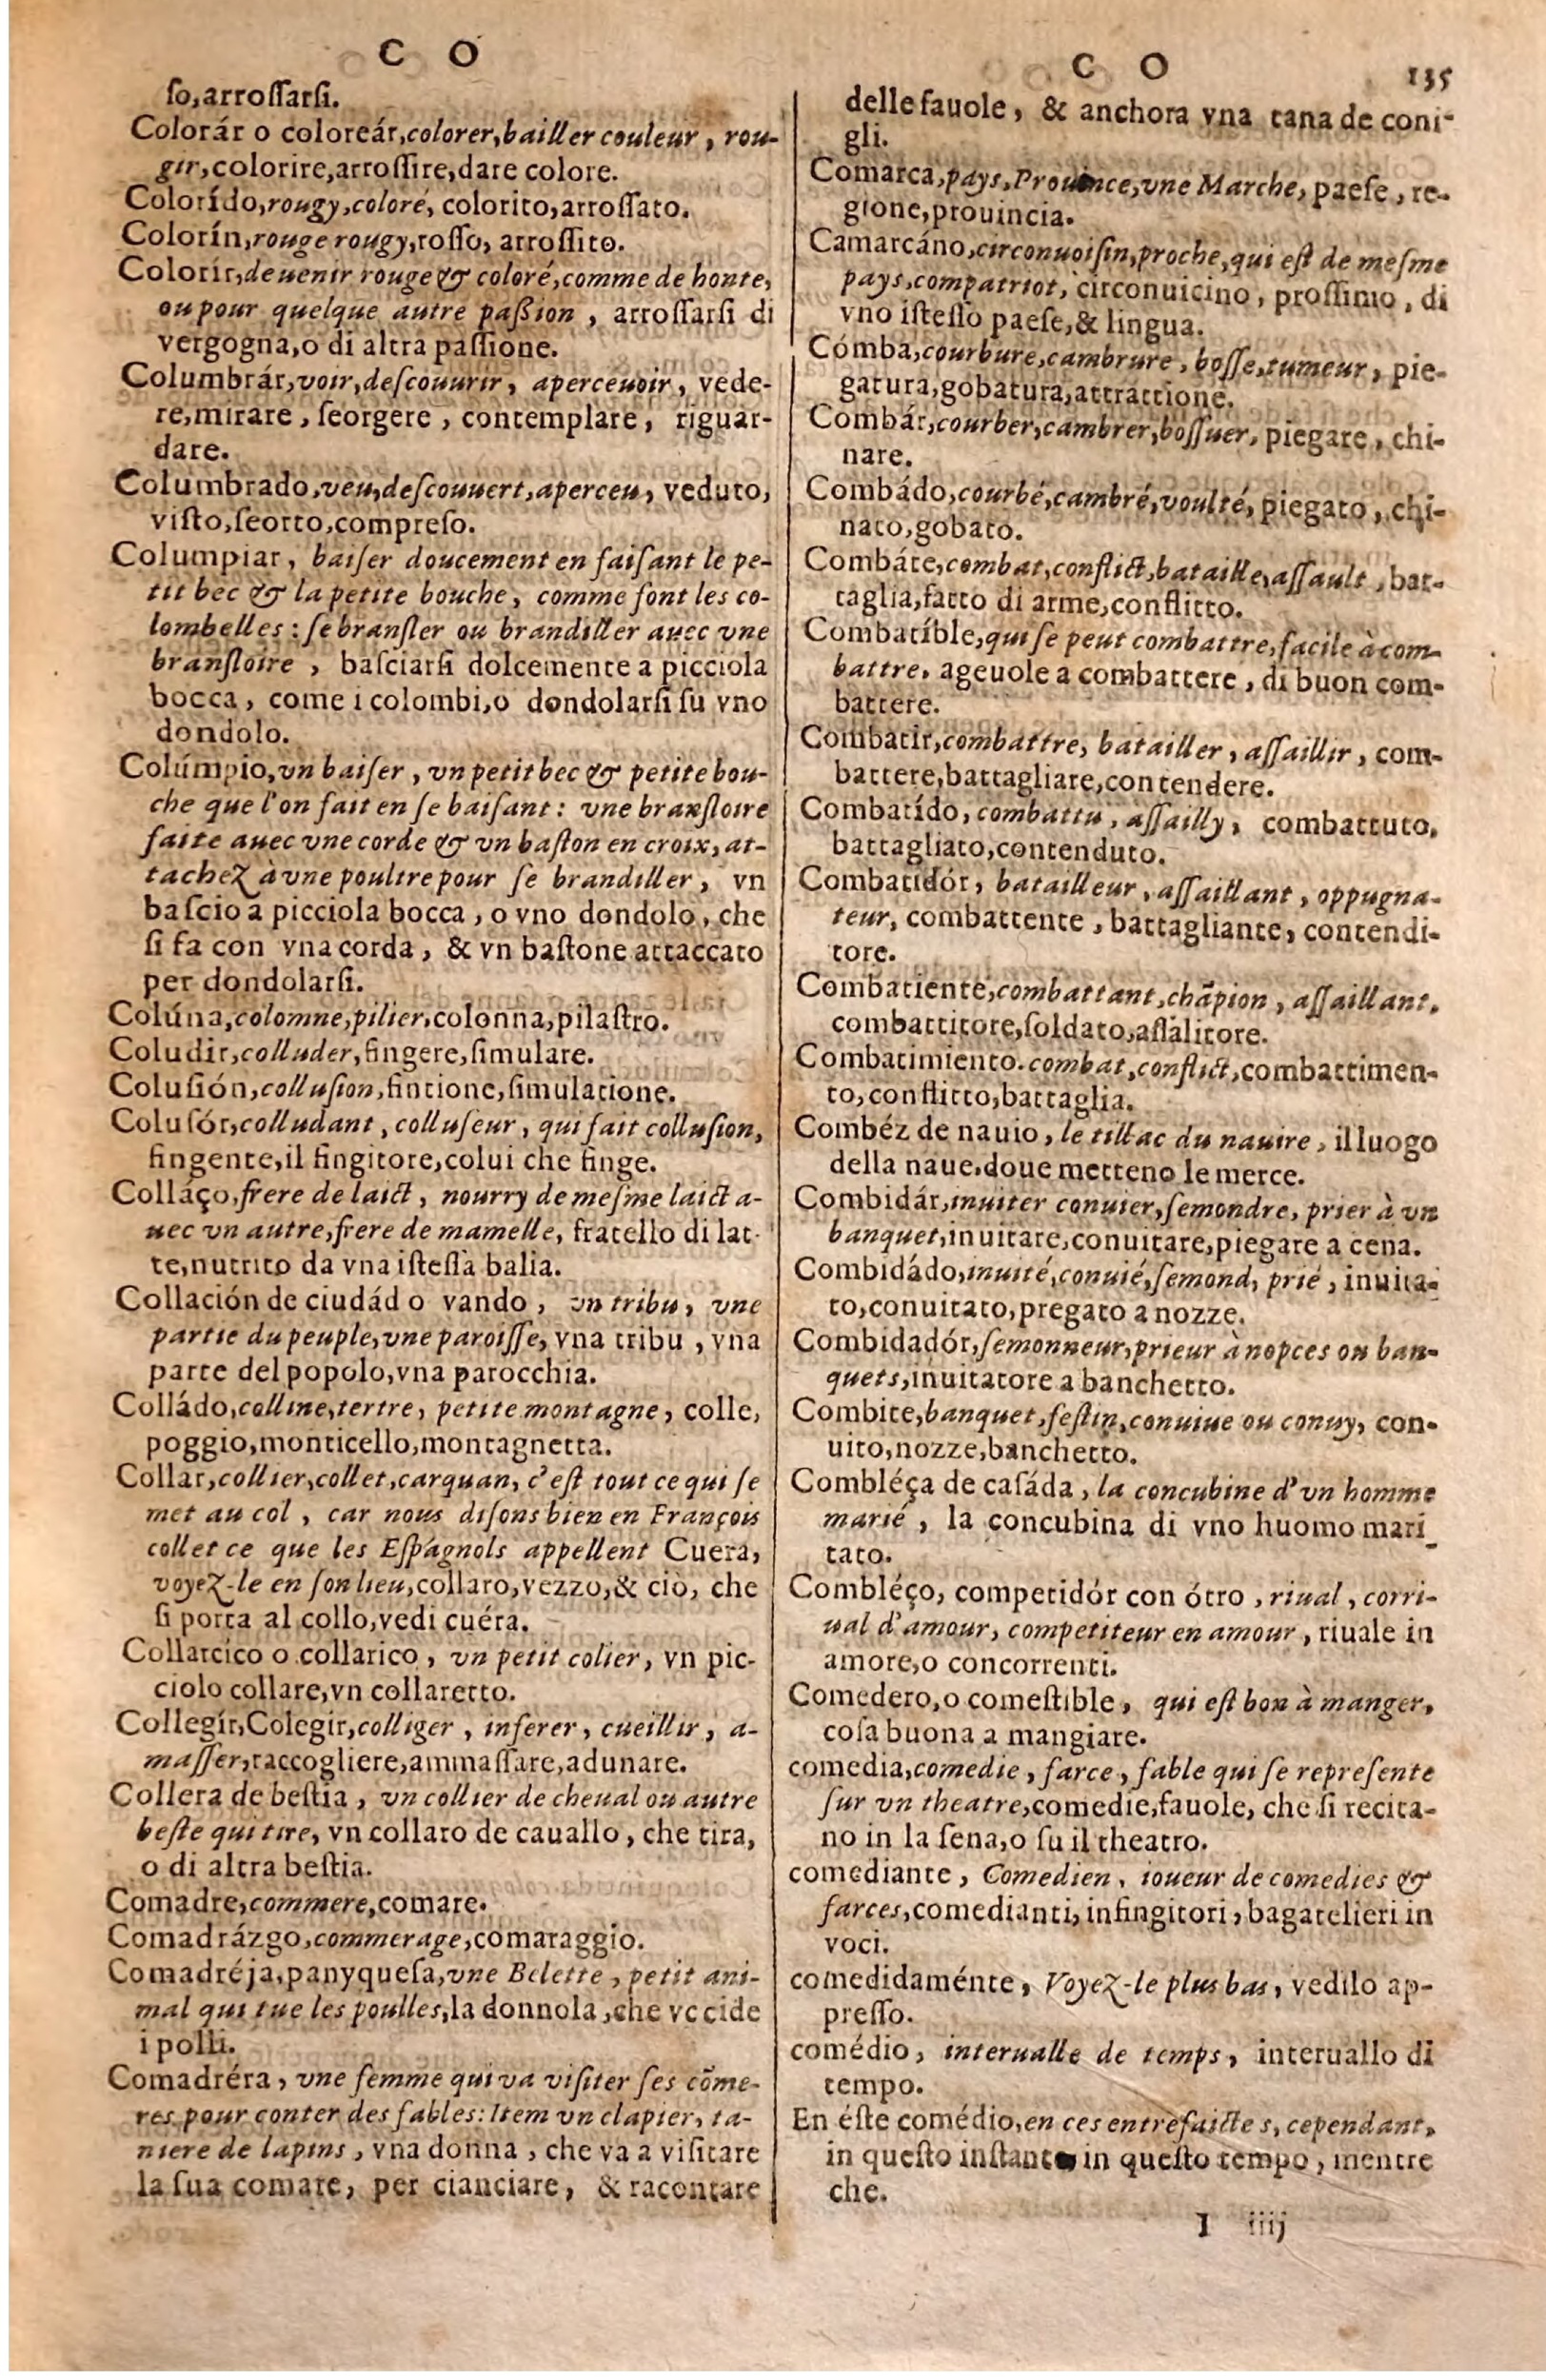 C O
ſo,arroſſarſi.
Colorár o coloreár,colorer,bailler couleur, rou-
gir,colorire,arroſſire,dare colore.
Colorído,rougy,coloré, colorito,arroſſato.
Colorín,rouge rougy,roſſo, arroſſito.
Colorír,deuenir rouge & coloré,comme de honte,
ou pour quelque autre paßion, arroſſarſi di
vergogna,o di altra paſſione.
Columbrár,voir,deſcouurir, aperceuoir, vede-
re,mirare, ſeorgere, contemplare, riguar-
dare.
Columbrado,veu,deſcouuert,aperceu, veduto,
viſto,ſeorto,compreſo.
Columpiar, baiſer doucement en faiſant le pe-
tit bec & la petite bouche, comme font les co-
lombelles: ſe branſler ou brandiller auec vne
branſloire, baſciarſi dolcemente a picciola
bocca, come i colombi,o dondolarſi ſu vno
dondolo.
Colúmpio,vn baiſer, vn petit bec & petite bou-
che que l'on fait en ſe baiſant: vne branſloire
faite auec vne corde & vn baſton en croix, at-
tachez à vne poultre pour ſe brandiller, vn
baſcio a picciola bocca, o vno dondolo, che
ſi fa con vna corda, & vn baſtone attaccato
per dondolarſi.
Colúna,colomne,pilier,colonna,pilaſtro.
Coludir,colluder,fingere,ſimulare.
Coluſión,colluſion,fintione,ſimulatione.
Coluſór,colludant, colluſeur, qui fait colluſion,
fingente,il fingitore,colui che finge.
Colláço,frere de laict, nourry de meſme laict a-
uec vn autre,frere de mamelle, fratello di lat-
te,nutrito da vna iſteſſa balia.
Collación de ciudád o vando, vn tribu, vne
partie du peuple,vne paroiſſe, vna tribu, vna
parte del popolo,vna parocchia.
Colládo,colline,tertre, petite montagne, colle,
poggio,monticello,montagnetta.
Collar,collier,collet,carquan, c'eſt tout ce qui ſe
met au col, car nous diſons bien en François
collet ce que les Eſpagnols appellent Cuera,
voyez-le en ſon lieu,collaro,vezzo,& ciò, che
ſi porta al collo,vedi cuéra.
Collarcico o collarico, vn petit colier, vn pic-
ciolo collare,vn collaretto.
Collegír,Colegir,colliger, inferer, cueillir, a-
maſſer,raccogliere,ammaſſare,adunare.
Collera de beſtia, vn collier de cheual ou autre
beſte qui tire, vn collaro de cauallo, che tira,
o di altra beſtia.
Comadre,commere,comare.
Comadrázgo,commerage,comaraggio.
Comadréja,panyqueſa,vne Belette, petit ani-
mal qui tue les poulles,la donnola,che vccide
i polli.
Comadréra, vne femme qui va viſiter ſes cōme-
res pour conter des fables: Item vn clapier, ta-
niere de lapins, vna donna, che va a viſitare
la ſua comare, per cianciare, & racontare
C O 135
delle fauole, & anchora vna tana de coni-
gli.
Comarca,pays,Prouince,vne Marche, paeſe, re-
gione,prouincia.
Camarcáno,circonuoiſin,proche,qui eſt de meſme
pays,compatriot, circonuicino, proſſimo, di
vno iſteſſo paeſe,& lingua.
Cómba,courbure,cambrure, boſſe,tumeur, pie-
gatura,gobatura,attrattione.
Combár,courber,cambrer,boſſuer, piegare, chi-
nare.
Combádo,courbé,cambré,voulté, piegato, chi-
nato,gobato.
Combáte,combat,conflict,bataille,aſſault, bat-
taglia,fatto di arme,conflitto.
Combatíble,qui ſe peut combattre,facile à com-
battre, ageuole a combattere, di buon com-
battere.
Combatir,combattre, batailler, aſſaillir, com-
battere,battagliare,contendere.
Combatído, combattu, aſſailly, combattuto,
battagliato,contenduto.
Combatidór, batailleur, aſſaillant, oppugna-
teur, combattente, battagliante, contendi-
tore.
Combatiente,combattant,chāpion, aſſaillant,
combattitore,ſoldato,aſſalitore.
Combatimiento. combat,conflict,combattimen-
to,conflitto,battaglia.
Combéz de nauio, le tillac du nauire, il luogo
della naue,doue metteno le merce.
Combidár,inuiter conuier,ſemondre, prier à vn
banquet,inuitare,conuitare,piegare a cena.
Combidádo,inuité,conuié,ſemond, prié, inuita-
to,conuitato,pregato a nozze.
Combidadór,ſemonneur,prieur à nopces ou ban-
quets,inuitatore a banchetto.
Combite,banquet,feſtin,conuiue ou conuy, con-
uito,nozze,banchetto.
Combléça de caſáda, la concubine d'vn homme
marié, la concubina di vno huomo mari-
tato.
Combléço, competidór con ótro, riual, corri-
ual d'amour, competiteur en amour, riuale in
amore,o concorrenti.
Comedero,o comeſtible, qui eſt bon à manger,
coſa buona a mangiare.
comedia,comedie, farce, fable qui ſe repreſente
ſur vn theatre,comedie,fauole, che ſi recita-
no in la ſena,o ſu il theatro.
comediante, Comedien, ioueur de comedies &
farces,comedianti, infingitori, bagatelieri in
voci.
comedidaménte, Voyez-le plus bas, vedilo ap-
preſſo.
comédio, interualle de temps, interuallo di
tempo.
En éſte comédio,en ces entrefaictes, cependant,
in queſto inſtante in queſto tempo, mentre
che.
I iiij